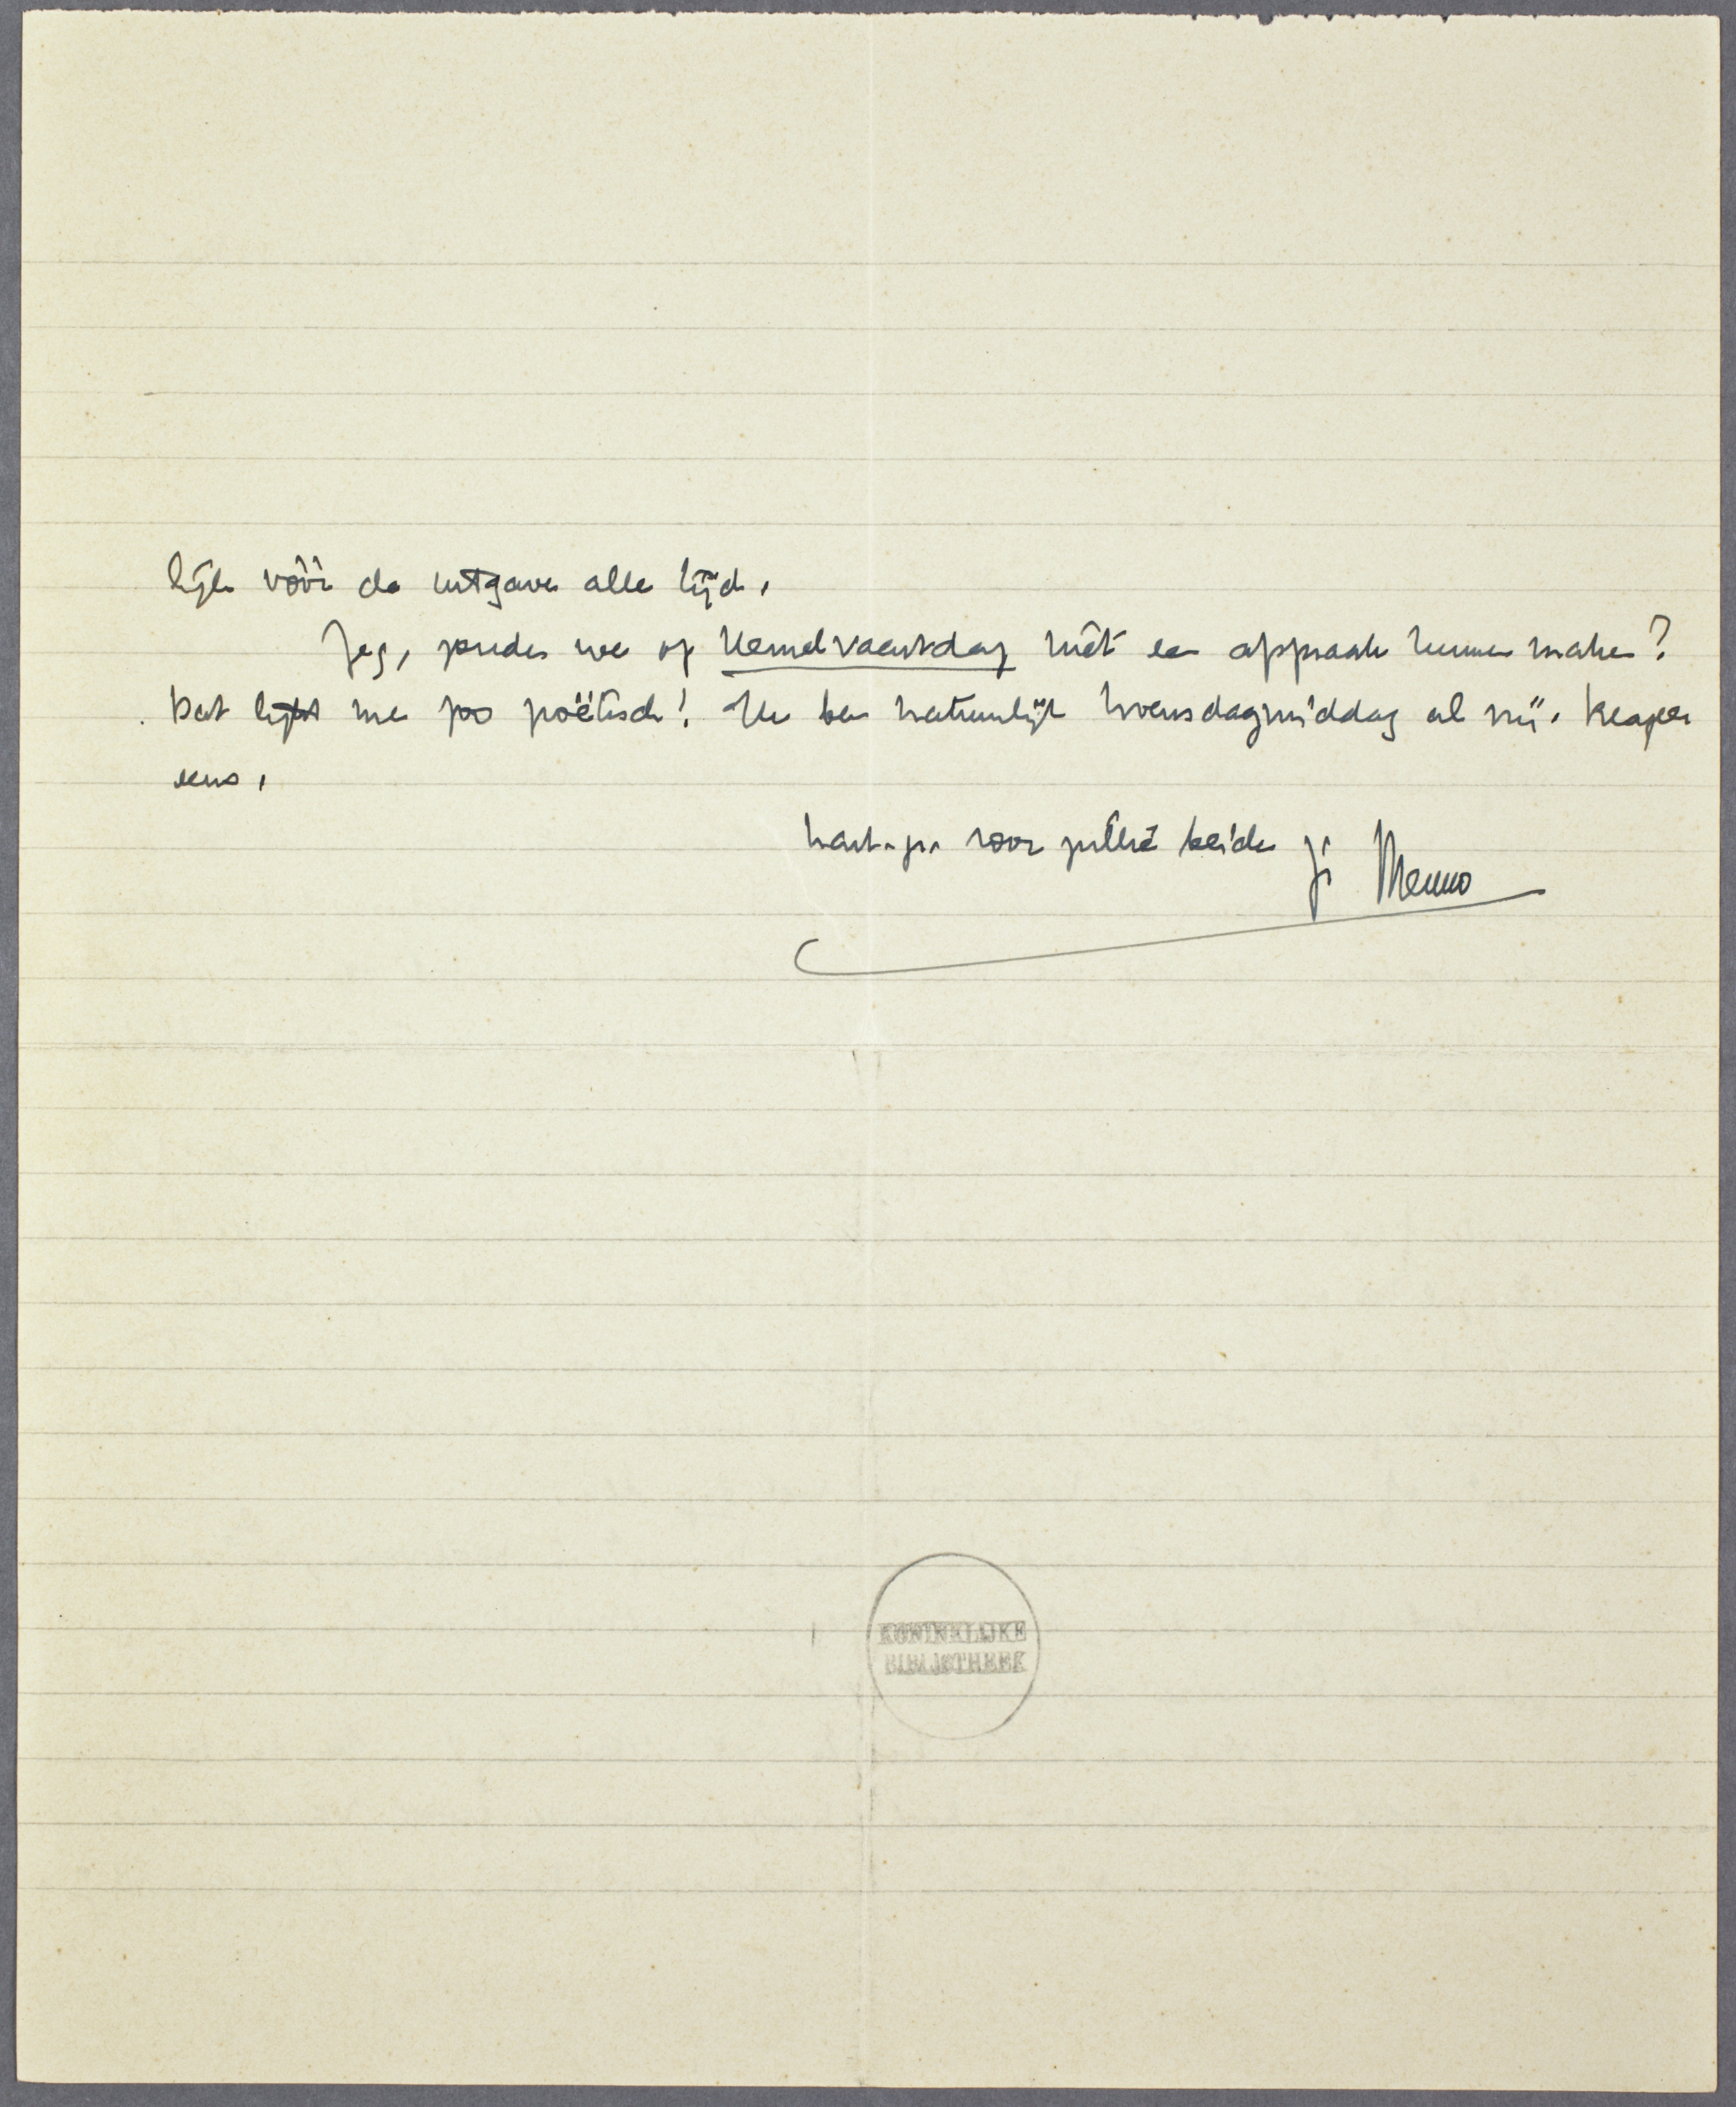 lijk vóór de uitgave alle tijd.
Zeg, zouden we op Hemelvaartsdag niet een afspraak kunnen maken?
Dat lijkt me zoo poëtisch! Ik ben natuurlijk Woensdagmiddag al vrij. Reageer
eens.
hart. gr. voor jullie beiden je Menno
KONINKLIJKE
BIBLIOTHEEK